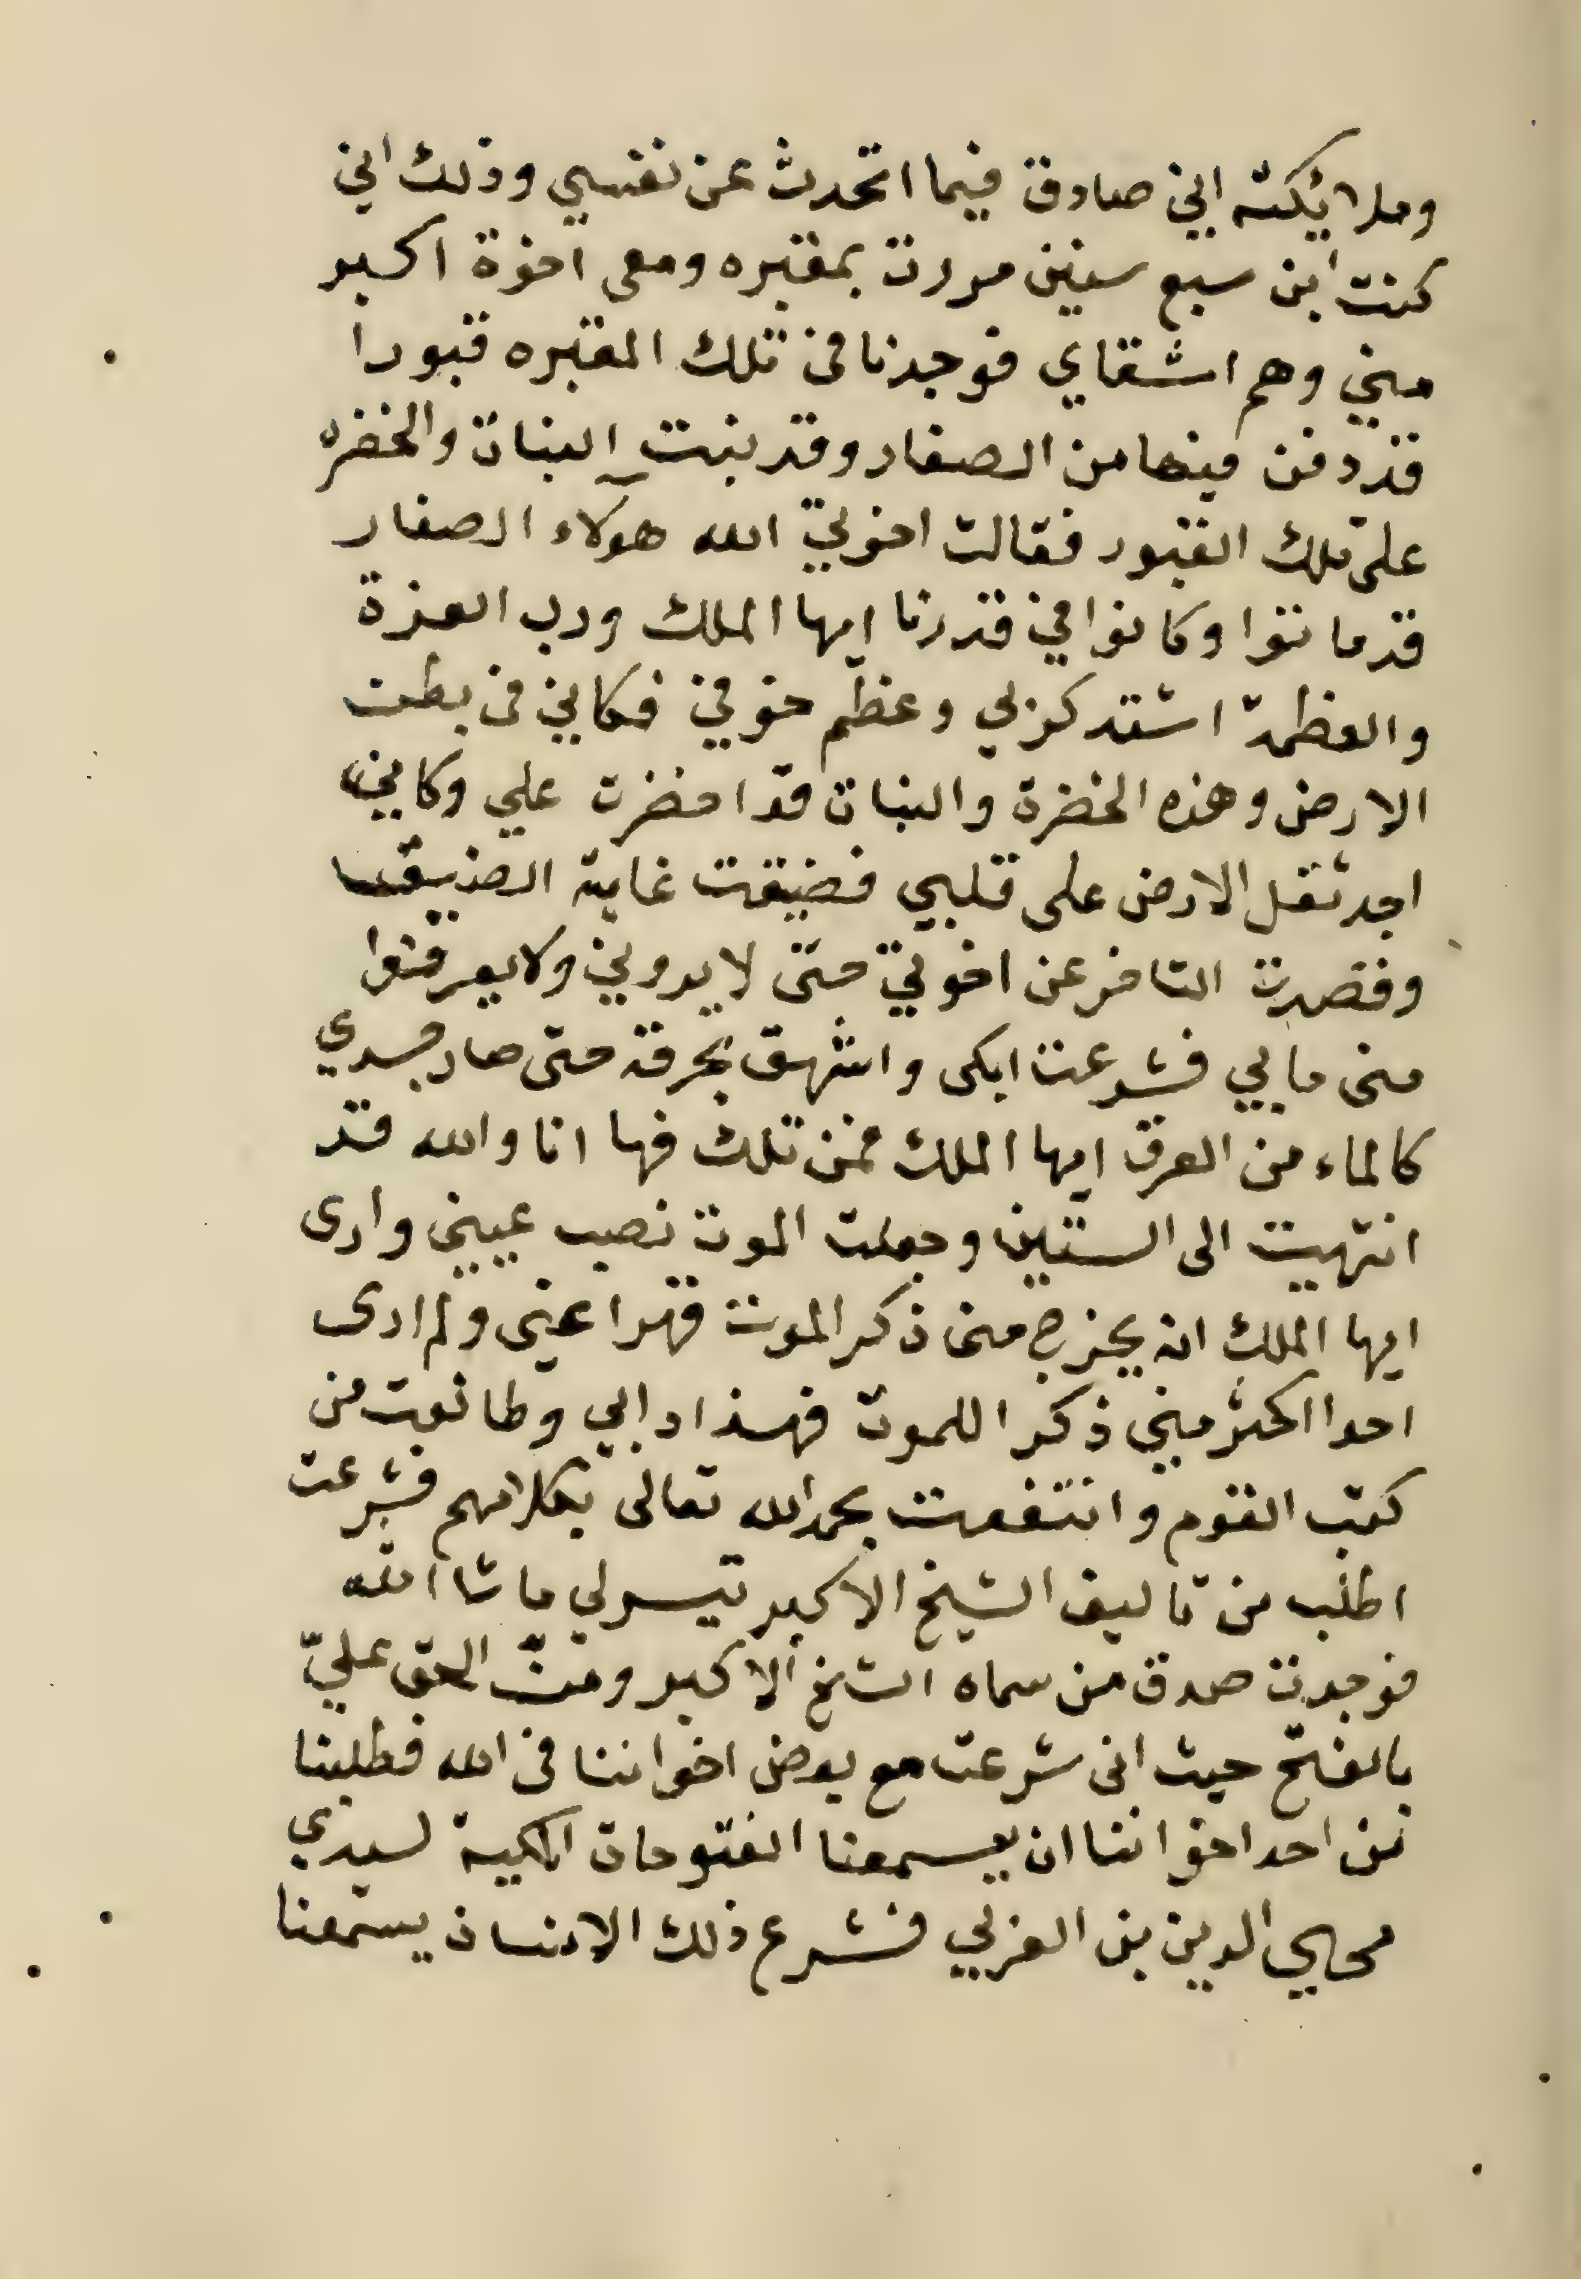 وملائكته اني صادق فيما اتحدث عن نفسي وذلك اني
كنت ابن سبع سنين مررت بمقبره ومعي اخوة اكبر
مني وهم اشقاي فوجدنا في تلك المقبره قبورا
قد دفن فيها من الصغار وقد نبت النبات والخضره
على تلك القبور فقالت اخوتي الله هولاء الصغار
قد ماتوا وكانوا في قدرنا ايها الملك ورب العزة
والعظمة اشتد كربي وعظم خوفي فكاني في بطن
الارض وهذه الخضرة والنبات قد اخضرت علي وكاني
اجد ثقل الارض على قلبي فضيقت غاية الضيق
وقصدت التاخر عن اخوتي حتى لا يروني ولا يعرفوا
مني ما بي فشرعت ابكى واشهق بحرقة حتى صار جسدي
كالماء من العرق ايها الملك فمن تلك فها انا والله قد
انتهيت الى الستين وجعلت الموت نصب عيني وارى
ايها الملك انه يخرج مني ذكر الموت قهرا عني ولم ارى
احدا اكثر مني ذكرا للموت فهذا دابي وطالعت من
كتب القوم وانتفعت بحمد الله تعالى بكلامهم فشرعت
اطلب من تاليف الشيخ الاكبر تيسر لي ما شا الله
فوجدت صدق من سماه الشيخ الاكبر ومنّ الحق عليّ
بالفتح حيث اني شرعت مع بعض اخواننا في الله فطلبنا
من احد اخواننا ان يسمعنا الفتوحات المكية لسيدي
محيي الدين بن العربي فشرع ذلك الانسان يسمعنا